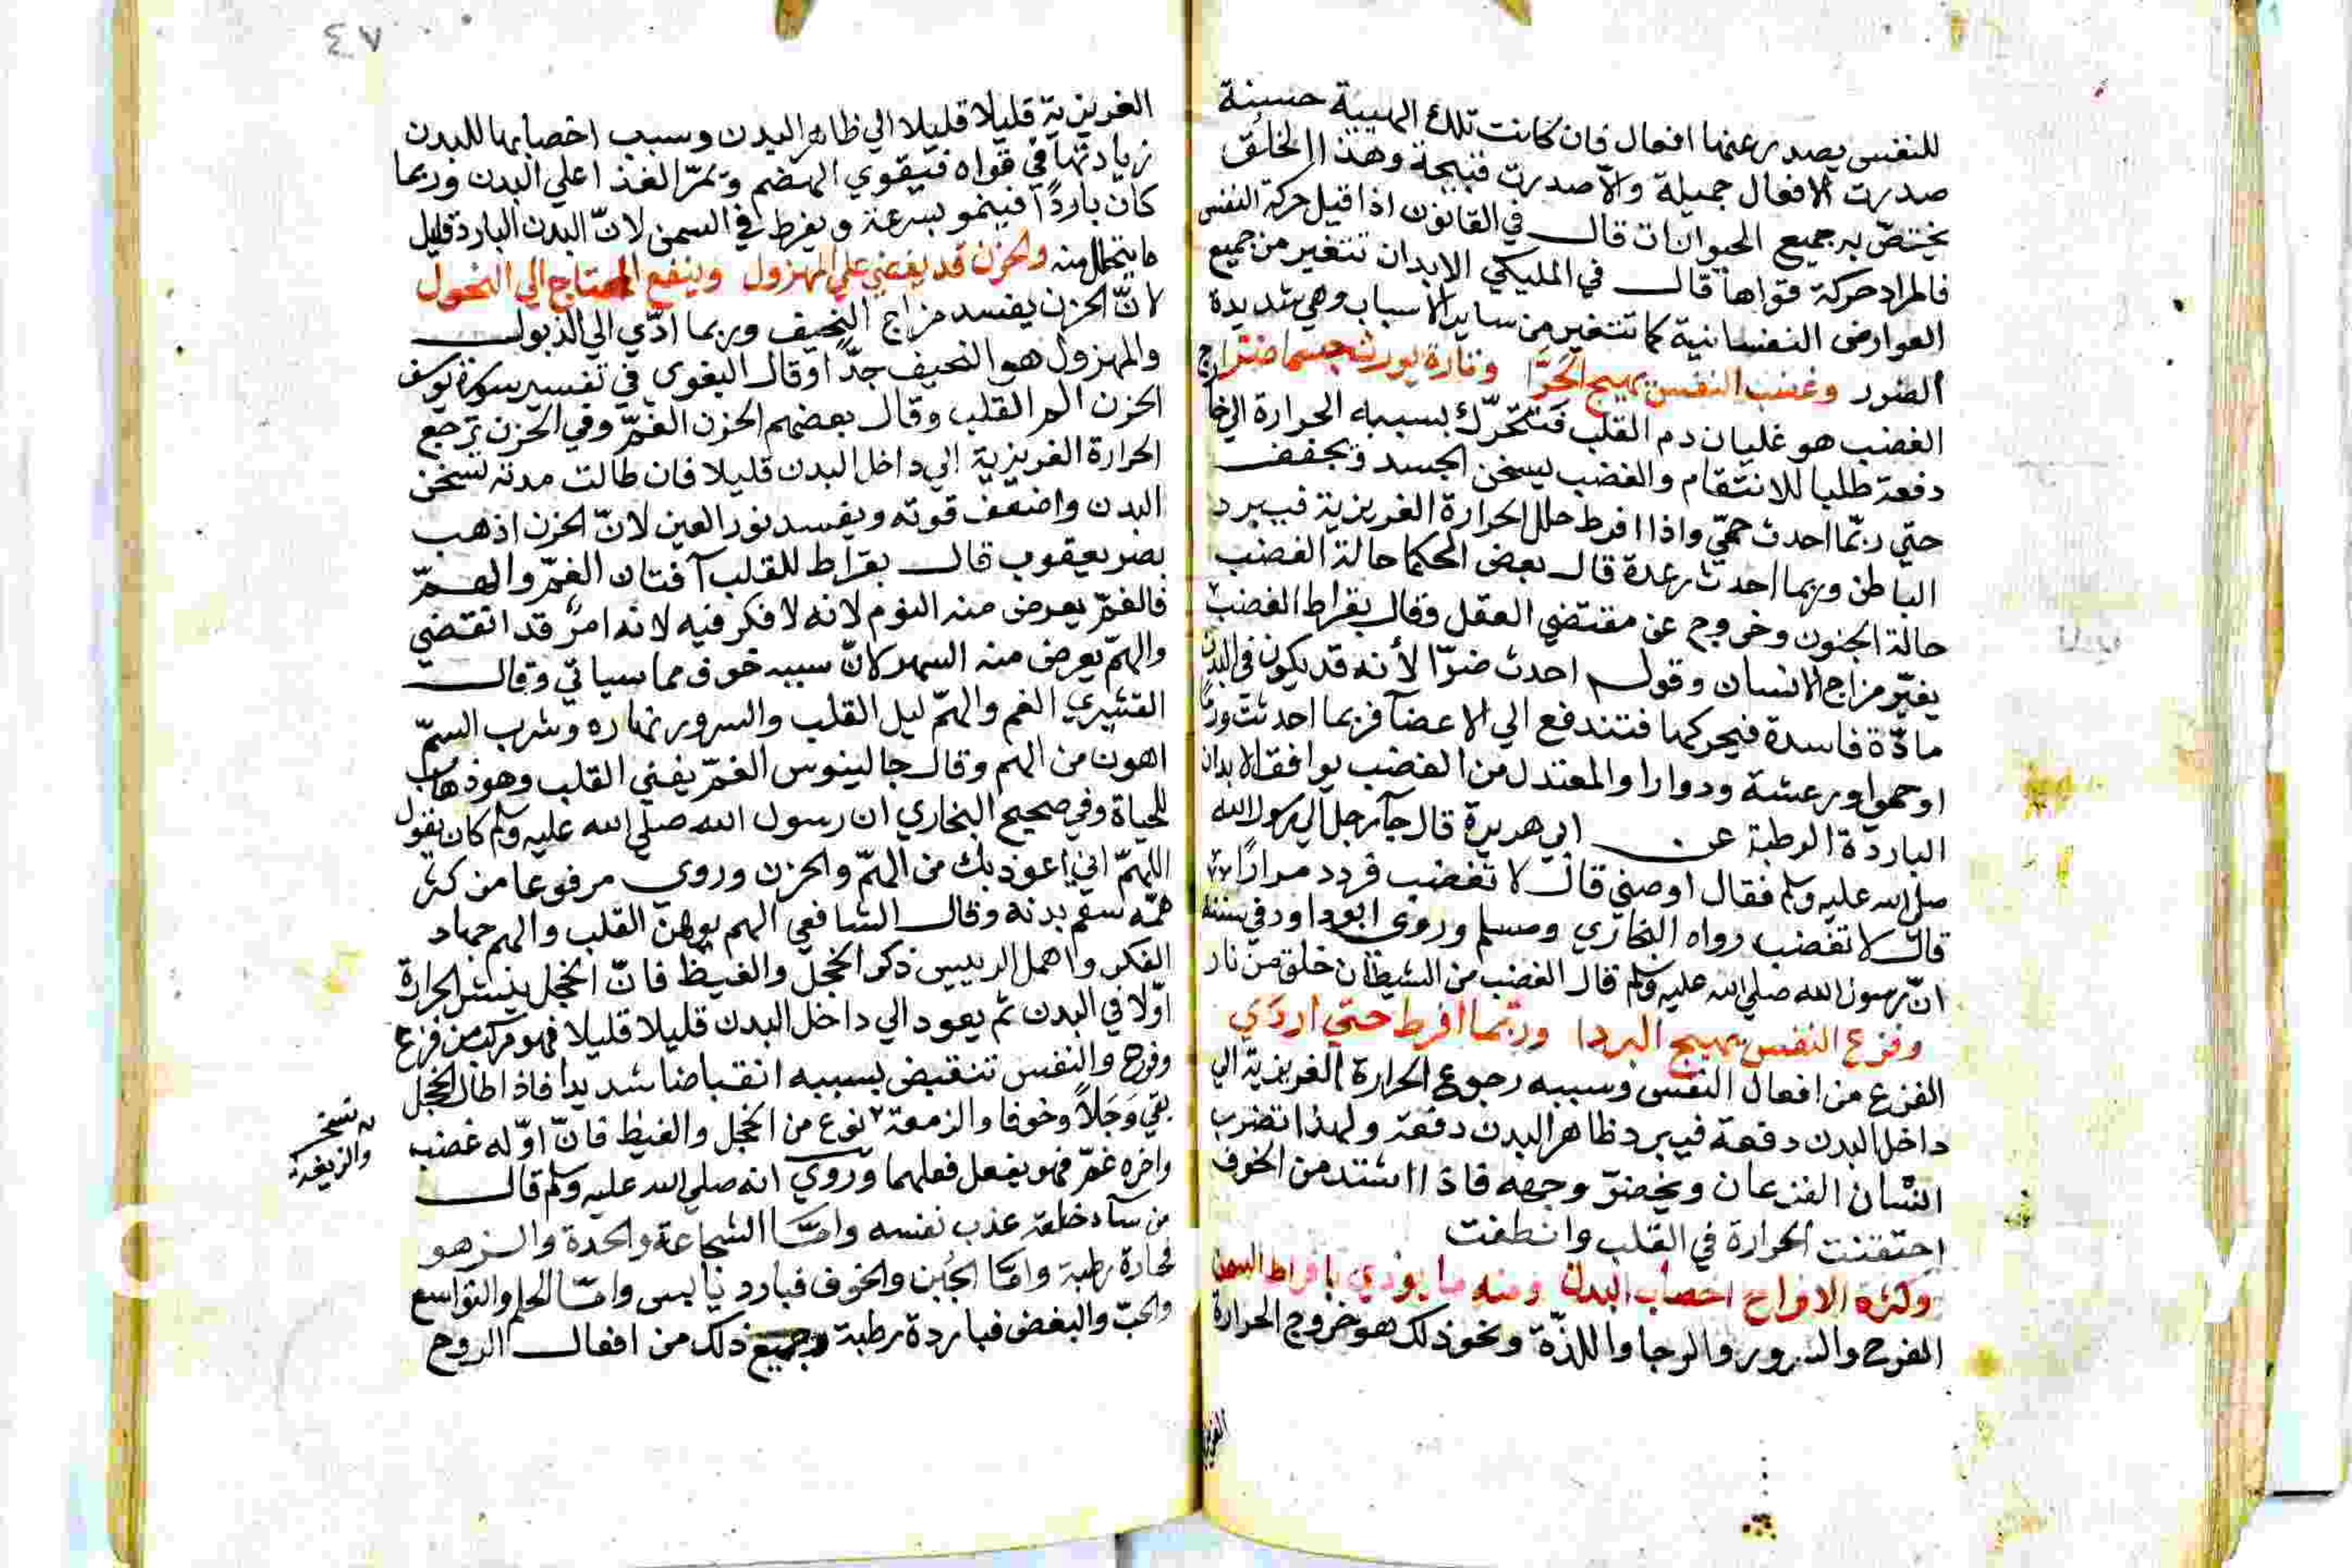 للنفس يصدر عنها افعال فان كانت تلك الهيية حسنة
صدرت الافعال جميلة والاّ صدرت قبيحة وهذا الخلق
يختصّ به جميع الحيوانات قال في القانون اذا قيل حركة النفس
فالمراد حركة قواها قال في المليكي الابدان تتغير من جميع
العوارض النفسانية كما تتغير من ساير الاسباب وهي شديدة
الضرر وغضب النفس يهيج الحَرَّا وتارة يورث جسما ضرا
الغضب هو غليان دم القلب فتتحرّك بسببه الحرارة الي خارج
دفعة طلبا للانتقام والغضب يسخن الجسد ويجفف
حتي ربّما احدث حمّي واذا افرط حلل الحرارة الغريزية فيبرد
الباطن وربما احدث رعدة قال بعض الحكما حالة الغضب
حالة الجنون وخروج عن مقتضي العقل وقال بقراط الغضب
يغيّر مزاج الانسان وقوله احدث ضرّا لأنه قد يكون في البدن
مادّة فاسدة فيحركها فتندفع الي الاعضآ فربما احدثت ورمًا
او حمي او رعشة ودوارا والمعتدل من الغضب يوافق الابدان
الباردة الرطبة عن ابي هريرة قال جآ رجل الي رسول الله
صلي الله عليه وسلم فقال اوصني قال لا تغضب فردد مرارًا
قال لا تغضب رواه البخاري ومسلم وروي ابو داود في سننه
انّ رسول الله صلي الله عليه وسلم قال الغضب من الشيطان خلق من نار
وفزع النفس يهيج البردا وربّما افرط حتي اردَي
الفزع من افعال النفس وسببه رجوع الحرارة الغريزية الي
داخل البدن دفعة فيبرد ظاهر البدن دفعة ولهذا تضرب
اسْنان الفزعان ويخضرّ وجهه فاذا اشتد من الخوف
احتقنت الحرارة في القلب وانطفت
وكثرة الافراح اخصاب البدن ومنه ما يوذي بافراط السمن
الفرح والسرور والرجا واللذّة ونحو ذلك هو خروج الحرارة
الغريزية
٤٧
الغريزية قليلا قليلا الي ظاهر البدن وسبب اخصابها للبدن
زيادتها في قواه فيقوي الهضم ويمرّ الغذا علي البدن وربما
كان باردًا فينمو بسرعة ويفرط في السمن لانّ البدن البارد قليل
ما يتحلل منه والحزن قد يقضي علي المهزول وينفع المحتاج الي النحول
لانّ الحزن يفسد مزاج النحيف وربما ادّي الي الذبول
والمهزول هو النحيف جدّا وقال البغوي في تفسير سورة يوسف
الحزن الم القلب وقال بعضهم الحزن الغمّ وفي الحزن ترجع
الحرارة الغريزية الي داخل البدن قليلا فان طالت مدته سخن
البدن واضعف قوته ويفسد نور العين لانّ الحزن اذهب
بصر يعقوب قال بقراط للقلب آفتان الغمّ والهمّ
فالغمّ يعرض منه النوم لانه لا فكر فيه لانه امرٌ قد انقضي
والهمّ يعرض منه السهر لانّ سببه خوف مما سياتي وقال
القشيري الغم والهمّ ليل القلب والسرور نهاره وشرب السمّ
اهون من الهم وقال جالينوس الغمّ يفني القلب وهو ذهاب
للحياة وفي صحيح البخاري ان رسول الله صلي الله عليه وسلم كان يقول
اللهمّ اني اعوذ بك من الهمّ والحزن وروي مرفوعا من كثر
همّه سقم بدنه وقال الشافعي الهم يوهن القلب والهم جهاد
الفكر واهمل الرييس ذكر الخجل والغيظ فانّ الخجل ينشر الحرارة
اوّلا في البدن ثم يعود الي داخل البدن قليلا قليلا فهو مركب من فزع
وفرح والنفس تنقبض بسببه انقباضا شديدا فاذا طال الخجل
بقي وَجَلاً وخوفا والزمعة نوع من الخجل والغيظ فانّ اوّله غضب
واخره غمّ فهو يفعل فعلهما وروي انه صلي الله عليه وسلم قال
من سآ خلقه عذب نفسه وامّا الشجاعة والحدة والزهو
فحارة رطبة وامّا الجُبن والخوف فبارد يابس وامّا الحلم والتواسع
والحبّ والبغض فباردة رطبة وجميع ذلك من افعال الروح